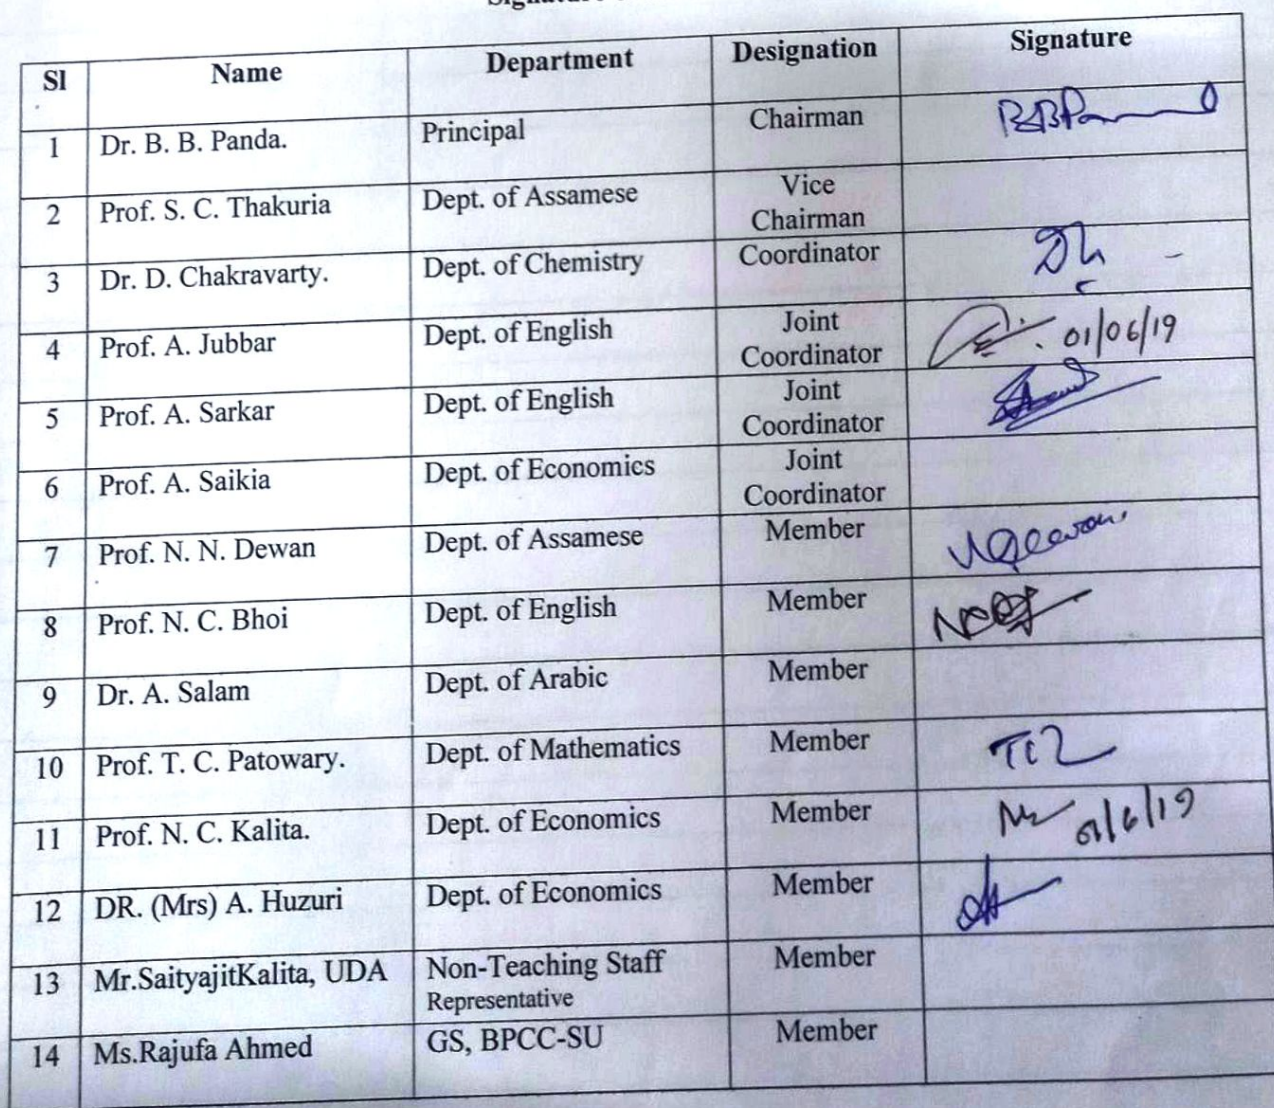 Sl Name Department Designation Signature
1 Dr. B. B. Panda. Principal Chairman BBPanda
2 Prof. S. C. Thakuria Dept. of Assamese Vice
Chairman
3 Dr. D. Chakravarty. Dept. of Chemistry Coordinator
4 Prof. A. Jubbar Dept. of English Joint
Coordinator 01/06/19
5 Prof. A. Sarkar Dept. of English Joint
Coordinator
6 Prof. A. Saikia Dept. of Economics Joint
Coordinator
7 Prof. N. N. Dewan Dept. of Assamese Member
8 Prof. N. C. Bhoi Dept. of English Member
9 Dr. A. Salam Dept. of Arabic Member
10 Prof. T. C. Patowary. Dept. of Mathematics Member
11 Prof. N. C. Kalita. Dept. of Economics Member 01/6/19
12 DR. (Mrs) A. Huzuri Dept. of Economics Member
13 Mr.SaityajitKalita, UDA Non-Teaching Staff Member
Representative
14 Ms.Rajufa Ahmed GS, BPCC-SU Member